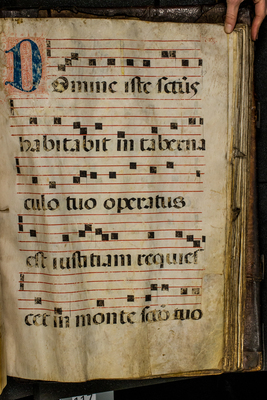 Domine iste sctus
habitabit in taberna
culo tuo operatus
est iustitiam requies
cet in monte scto tuo